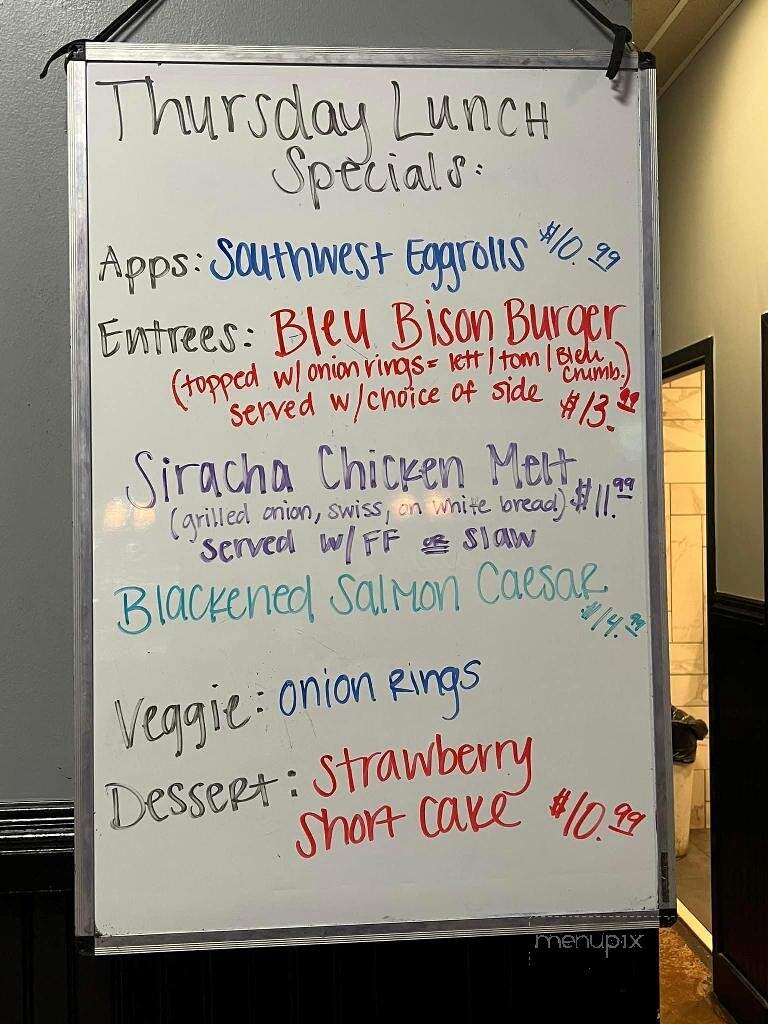 Thursday Lunch
Specials:
Apps: Southwest Eggrolls $10.99
Entrees: Bleu Bison Burger
(topped w/onion rings= lett/tom/Bleu Crumb.)
served w/choice of side $13.99
Siracha Chicken Melt
(grilled onion, swiss, on white bread) $11.99
served w/FF or slaw
Blackened Salmon Caesar
$14.99
Veggie: onion rings
Dessert: strawberry
short cake $10.99
menupix